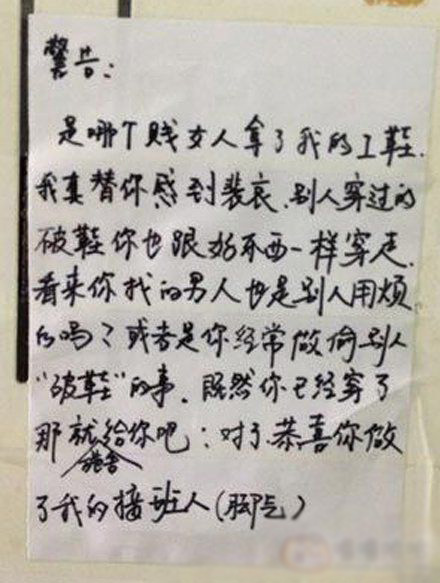 警告：
是哪个贱女人拿了我的工鞋.
我真替你感到悲哀.别人穿过的
破鞋你也跟好东西一样穿走.
看来你找的男人也是别人用烦
的吗？或者是你经常做偷别人
“破鞋”的事.既然你已经穿了
那就施舍给你吧：对了.恭喜你做
了我的接班人(脚气)